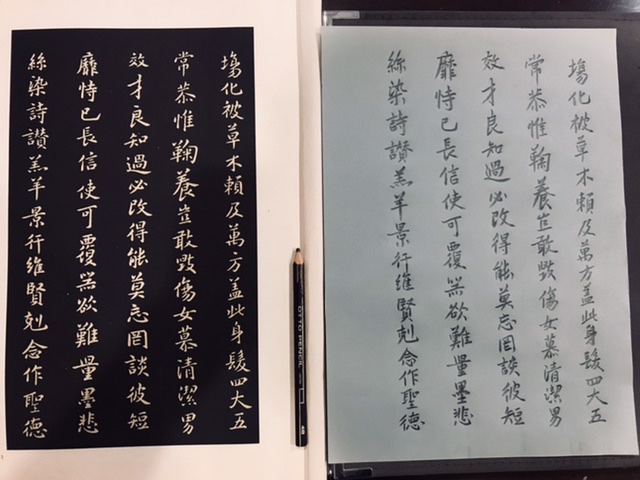 塲化被草木賴及萬方盖此身髮四大五
常恭惟鞠養豈敢毀傷女慕清潔男
效才良知過必改得能莫忘罔談彼短
靡恃己長信使可覆器欲難量墨悲
絲染詩讚羔羊景行維賢剋念作聖德
塲化被草木賴及萬方盖此身髮四大五
常恭惟鞠養豈敢毀傷女慕清潔男
效才良知過必改得能莫忘罔談彼短
靡恃己長信使可覆器欲難量墨悲
絲染詩讚羔羊景行維賢剋念作聖德